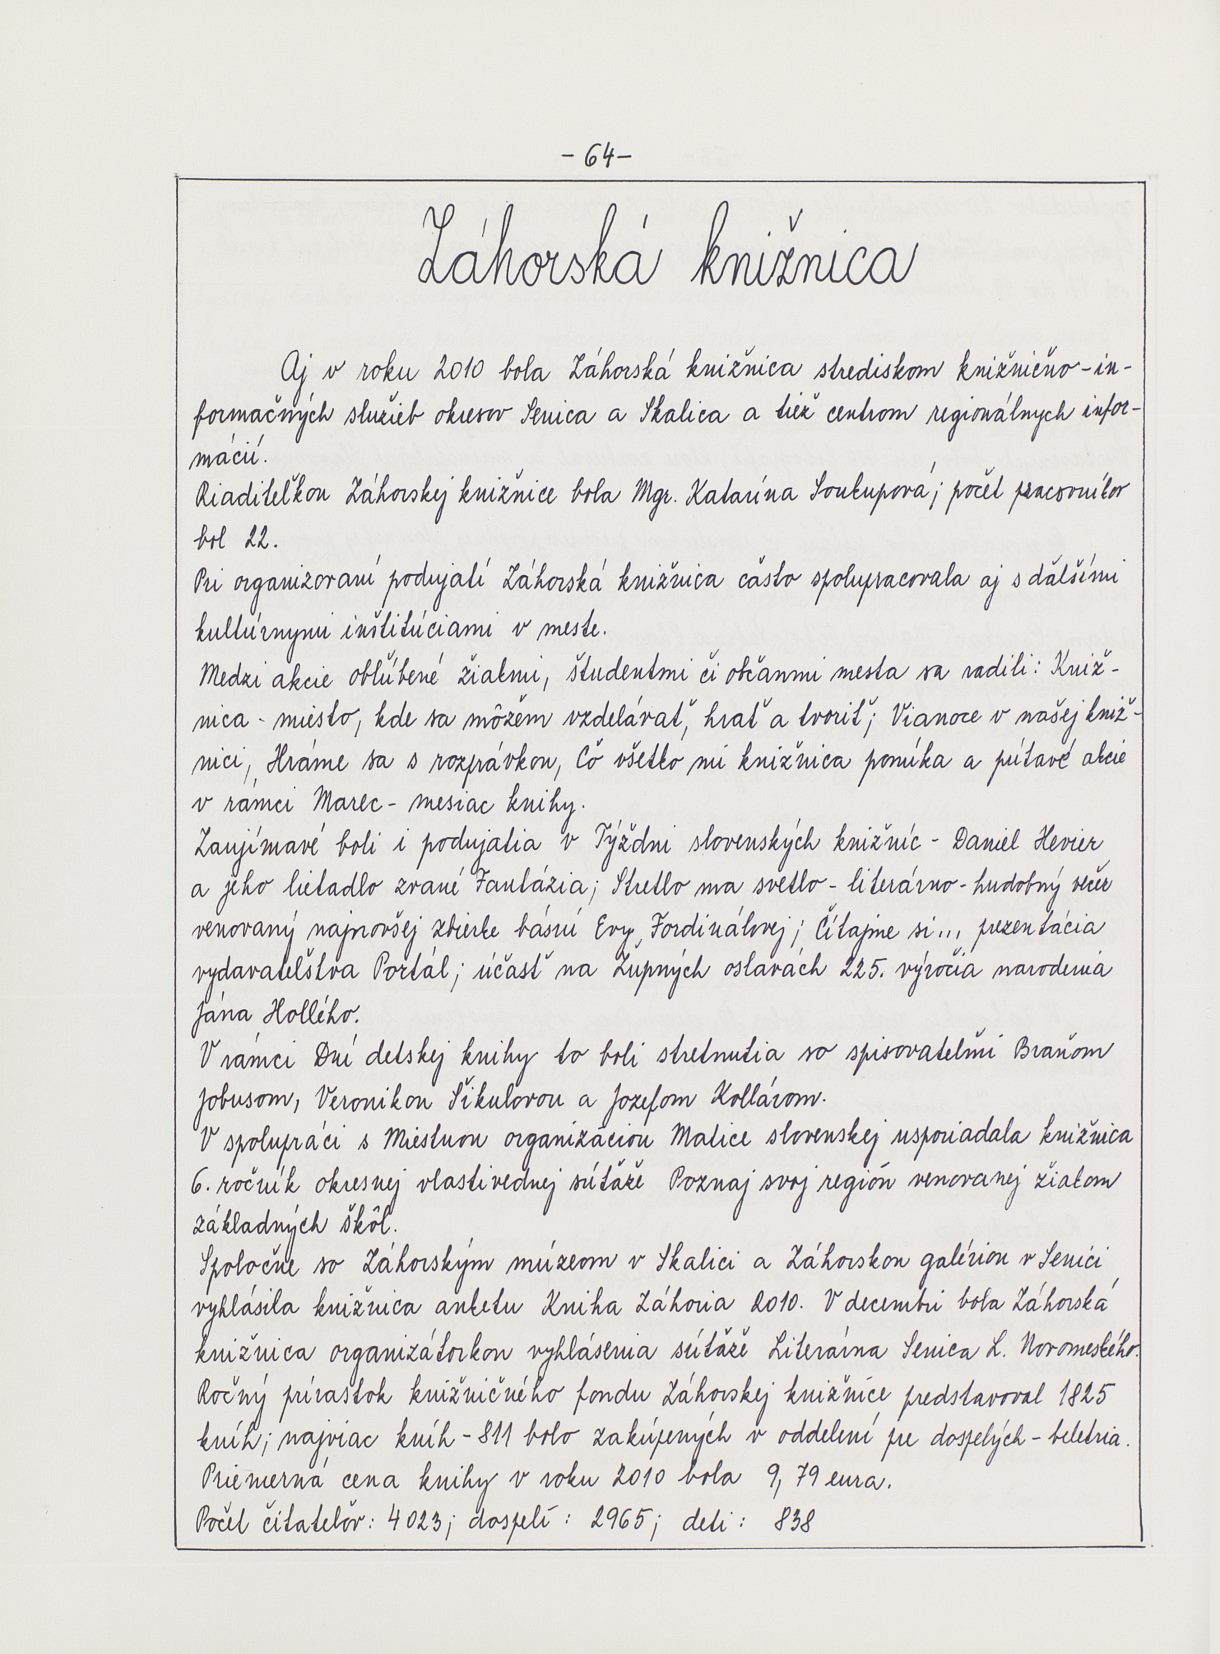 - 64 -
Záhorská knižnica
Aj v roku 2010 bola Záhorská knižnica strediskom knižnično-in-
formačných služieb okresov Senica a Skalica a tiež centrom regionálnych infor-
mácií.
Riaditeľkou Záhorskej knižnice bola Mgr. Katarína Soukupová; počet pracovníkov
bol 22.
Pri organizovaní podujatí Záhorská knižnica často spolupracovala aj s ďalšími
kultúrnymi inštitúciami v meste.
Medzi akcie obľúbené žiakmi, študentmi či občanmi mesta sa radili: Kniž-
nica - miesto, kde sa môžem vzdelávať, hrať a tvoriť; Vianoce v našej kniž-
nici, Hráme sa s rozprávkou, Čo všetko mi knižnica ponúka a pútavé akcie
v rámci Marec - mesiac knihy.
Zaujímavé boli i podujatia v Týždni slovenských knižníc - Daniel Hevier
a jeho lietadlo zvané Fantázia; Stretlo ma svetlo - literárno-hudobný večer
venovaný najnovšej zbierke básní Evy Fordinálovej; Čítajme si... prezentácia
vydavateľstva Portál; účasť na Župných oslavách 225. výročia narodenia
Jána Hollého.
V rámci Dní detskej knihy to boli stretnutia so spisovateľmi Braňom
Jobusom, Veronikou Šikulovou a Jozefom Kollárom.
V spolupráci s Miestnou organizáciou Matice slovenskej usporiadala knižnica
6. ročník okresnej vlastivednej súťaže Poznaj svoj región venovanej žiakom
základných škôl.
Spoločne so Záhorským múzeom v Skalici a Záhorskou galériou v Senici
vyhlásila knižnica anketu Kniha Záhoria 2010. V decembri bola Záhorská
knižnica organizátorkou vyhlásenia súťaže Literárna Senica L. Novomeského.
Ročný prírastok knižničného fondu Záhorskej knižnice predstavoval 1825
kníh; najviac kníh - 811 bolo zakúpených v oddelení pre dospelých - beletria.
Priemerná cena knihy v roku 2010 bola 9,79 eura.
Počet čitateľov: 4023; dospelí: 2965; deti: 838